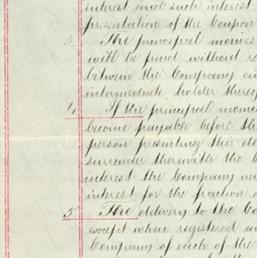 interest and such interest
presentation of the Coupon
3. The principal monies
will be paid without
between the Company
intermediate holder thereof
4. If the principal
become payable before the
person presenting this
surrender therewith the
interest the Company
interest for the fraction
5. The delivery to the
except when registered
Company of each of the